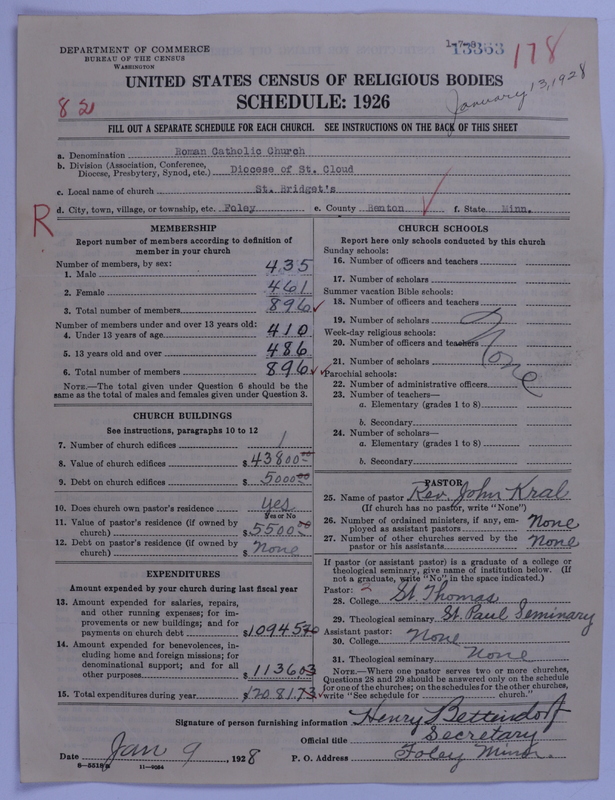 DEPARTMENT OF COMMERCE
BUREAU OF THE CENSUS
WASHINGTON
1-7-8
13363
178
UNITED STATES CENSUS OF RELIGIOUS BODIES
SCHEDULE: 1926
82
January 13, 1928
FILL OUT A SEPARATE SCHEDULE FOR EACH CHURCH. SEE INSTRUCTIONS ON THE BACK OF THIS SHEET
a. Denomination Roman Catholic Church
b. Division (Association, Conference, Diocese, Presbytery, Synod, etc.) Diocese of St. Cloud
c. Local name of church St. Bridget's
d. City, town, village, or township, etc. Foley e. County Benton f. State Minn.
R
MEMBERSHIP
Report number of members according to definition of
member in your church
Number of members, by sex:
1. Male 435
2. Female 461
3. Total number of members 896
Number of members under and over 13 years old:
4. Under 13 years of age 410
5. 13 years old and over 486
6. Total number of members 896
NOTE.—The total given under Question 6 should be the
same as the total of males and females given under Question 3.
CHURCH BUILDINGS
See instructions, paragraphs 10 to 12
7. Number of church edifices 1
8. Value of church edifices $43800.00
9. Debt on church edifices $5000.00
10. Does church own pastor's residence? yes
Yes or No
11. Value of pastor's residence (if owned by
church) $5500.00
12. Debt on pastor's residence (if owned by
church) $None
EXPENDITURES
Amount expended by your church during last fiscal year
13. Amount expended for salaries, repairs,
and other running expenses; for im-
provements or new buildings; and for
payments on church debt $10945.70
14. Amount expended for benevolences, in-
cluding home and foreign missions; for
denominational support; and for all
other purposes $1136.03
15. Total expenditures during year $12081.73
CHURCH SCHOOLS
Report here only schools conducted by this church
Sunday schools:
16. Number of officers and teachers
17. Number of scholars
Summer vacation Bible schools:
18. Number of officers and teachers
19. Number of scholars
Week-day religious schools:
20. Number of officers and teachers
21. Number of scholars
None
Parochial schools:
22. Number of administrative officers
23. Number of teachers—
a. Elementary (grades 1 to 8)
b. Secondary
24. Number of scholars—
a. Elementary (grades 1 to 8)
b. Secondary
PASTOR
25. Name of pastor Rev. John Kral
(If church has no pastor, write "None")
26. Number of ordained ministers, if any, em-
ployed as assistant pastors None
27. Number of other churches served by the
pastor or his assistants None
If pastor (or assistant pastor) is a graduate of a college or
theological seminary, give name of institution below. (If
not a graduate, write "No" in the space indicated.)
Pastor: 2
28. College St. Thomas
29. Theological seminary St. Paul Seminary
Assistant pastor:
30. College None
31. Theological seminary None
NOTE.—Where one pastor serves two or more churches,
Questions 28 and 29 should be answered only on the schedule
for one of the churches; on the schedules for the other churches,
write "See schedule for church."
Signature of person furnishing information Henry Bettindorf
Official title Secretary
Date Jan 9, 1928 P. O. Address Foley Minn.
11—9054